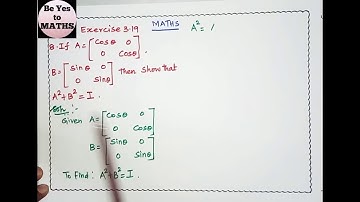 Be Yes
to
MATHS
MATHS
Exercise 3.19
A² = A
8. If A = [Cosθ 0
0 Cosθ].
B = [Sinθ 0
0 Sinθ] Then show that
A² + B² = I.
Soln:
Given A = [Cosθ 0
0 Cosθ]
B = [Sinθ 0
0 Sinθ]
To find: A² + B² = I.